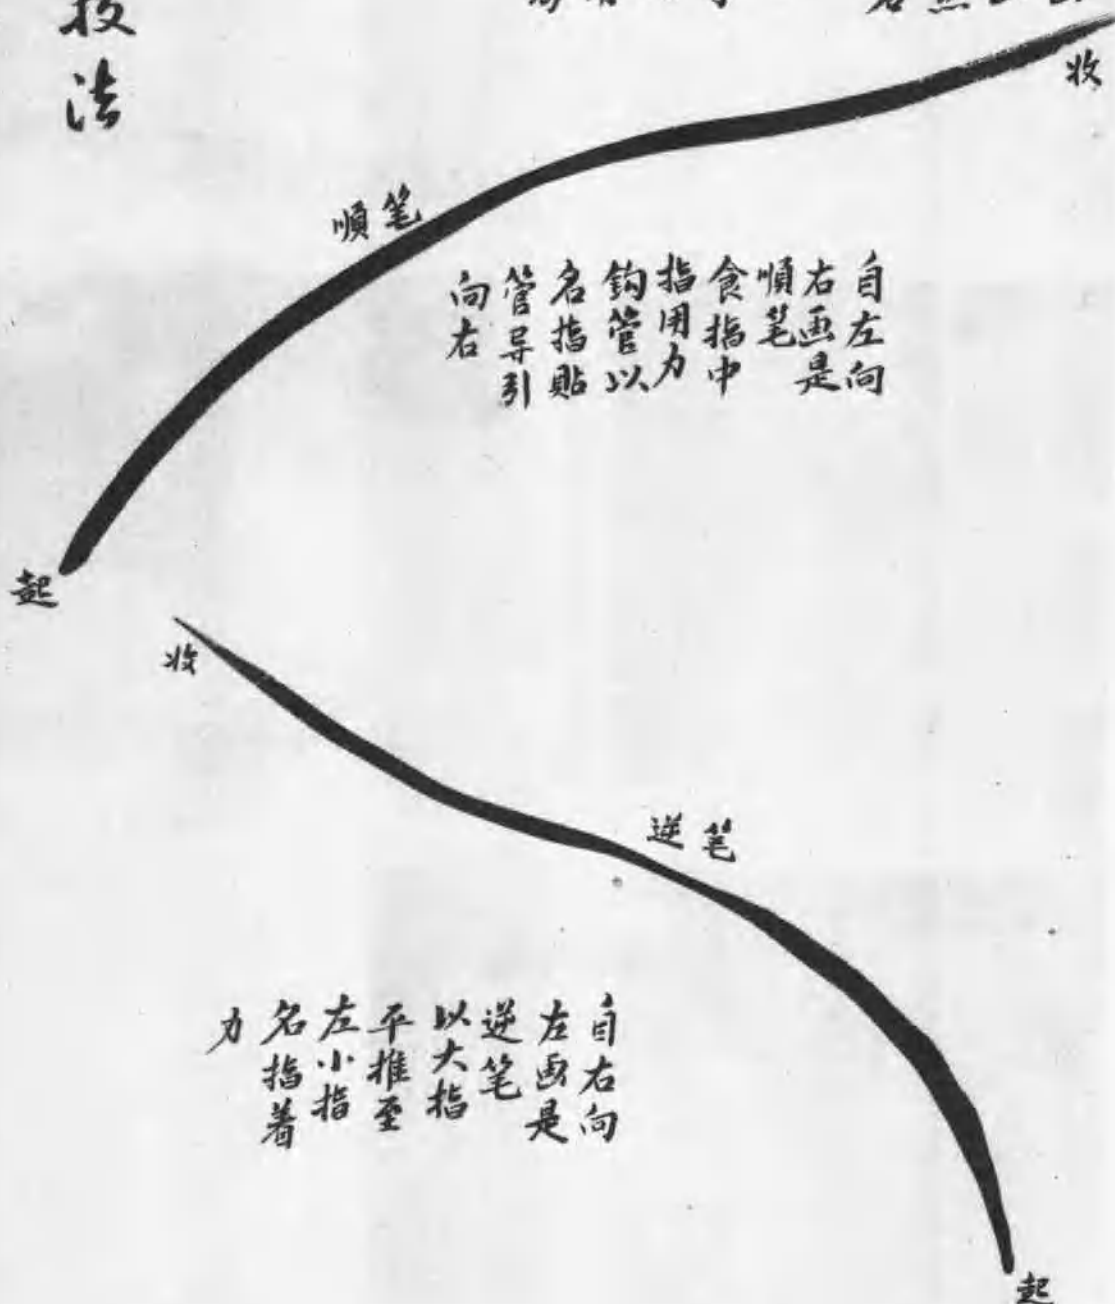 技法
收
順笔
自左向
右画是
順笔
食指中
指用力
鈎管以
名指貼
管导引
向右
起
收
逆笔
自右向
左画是
逆笔
以大指
平推至
左小指
名指着
力
起